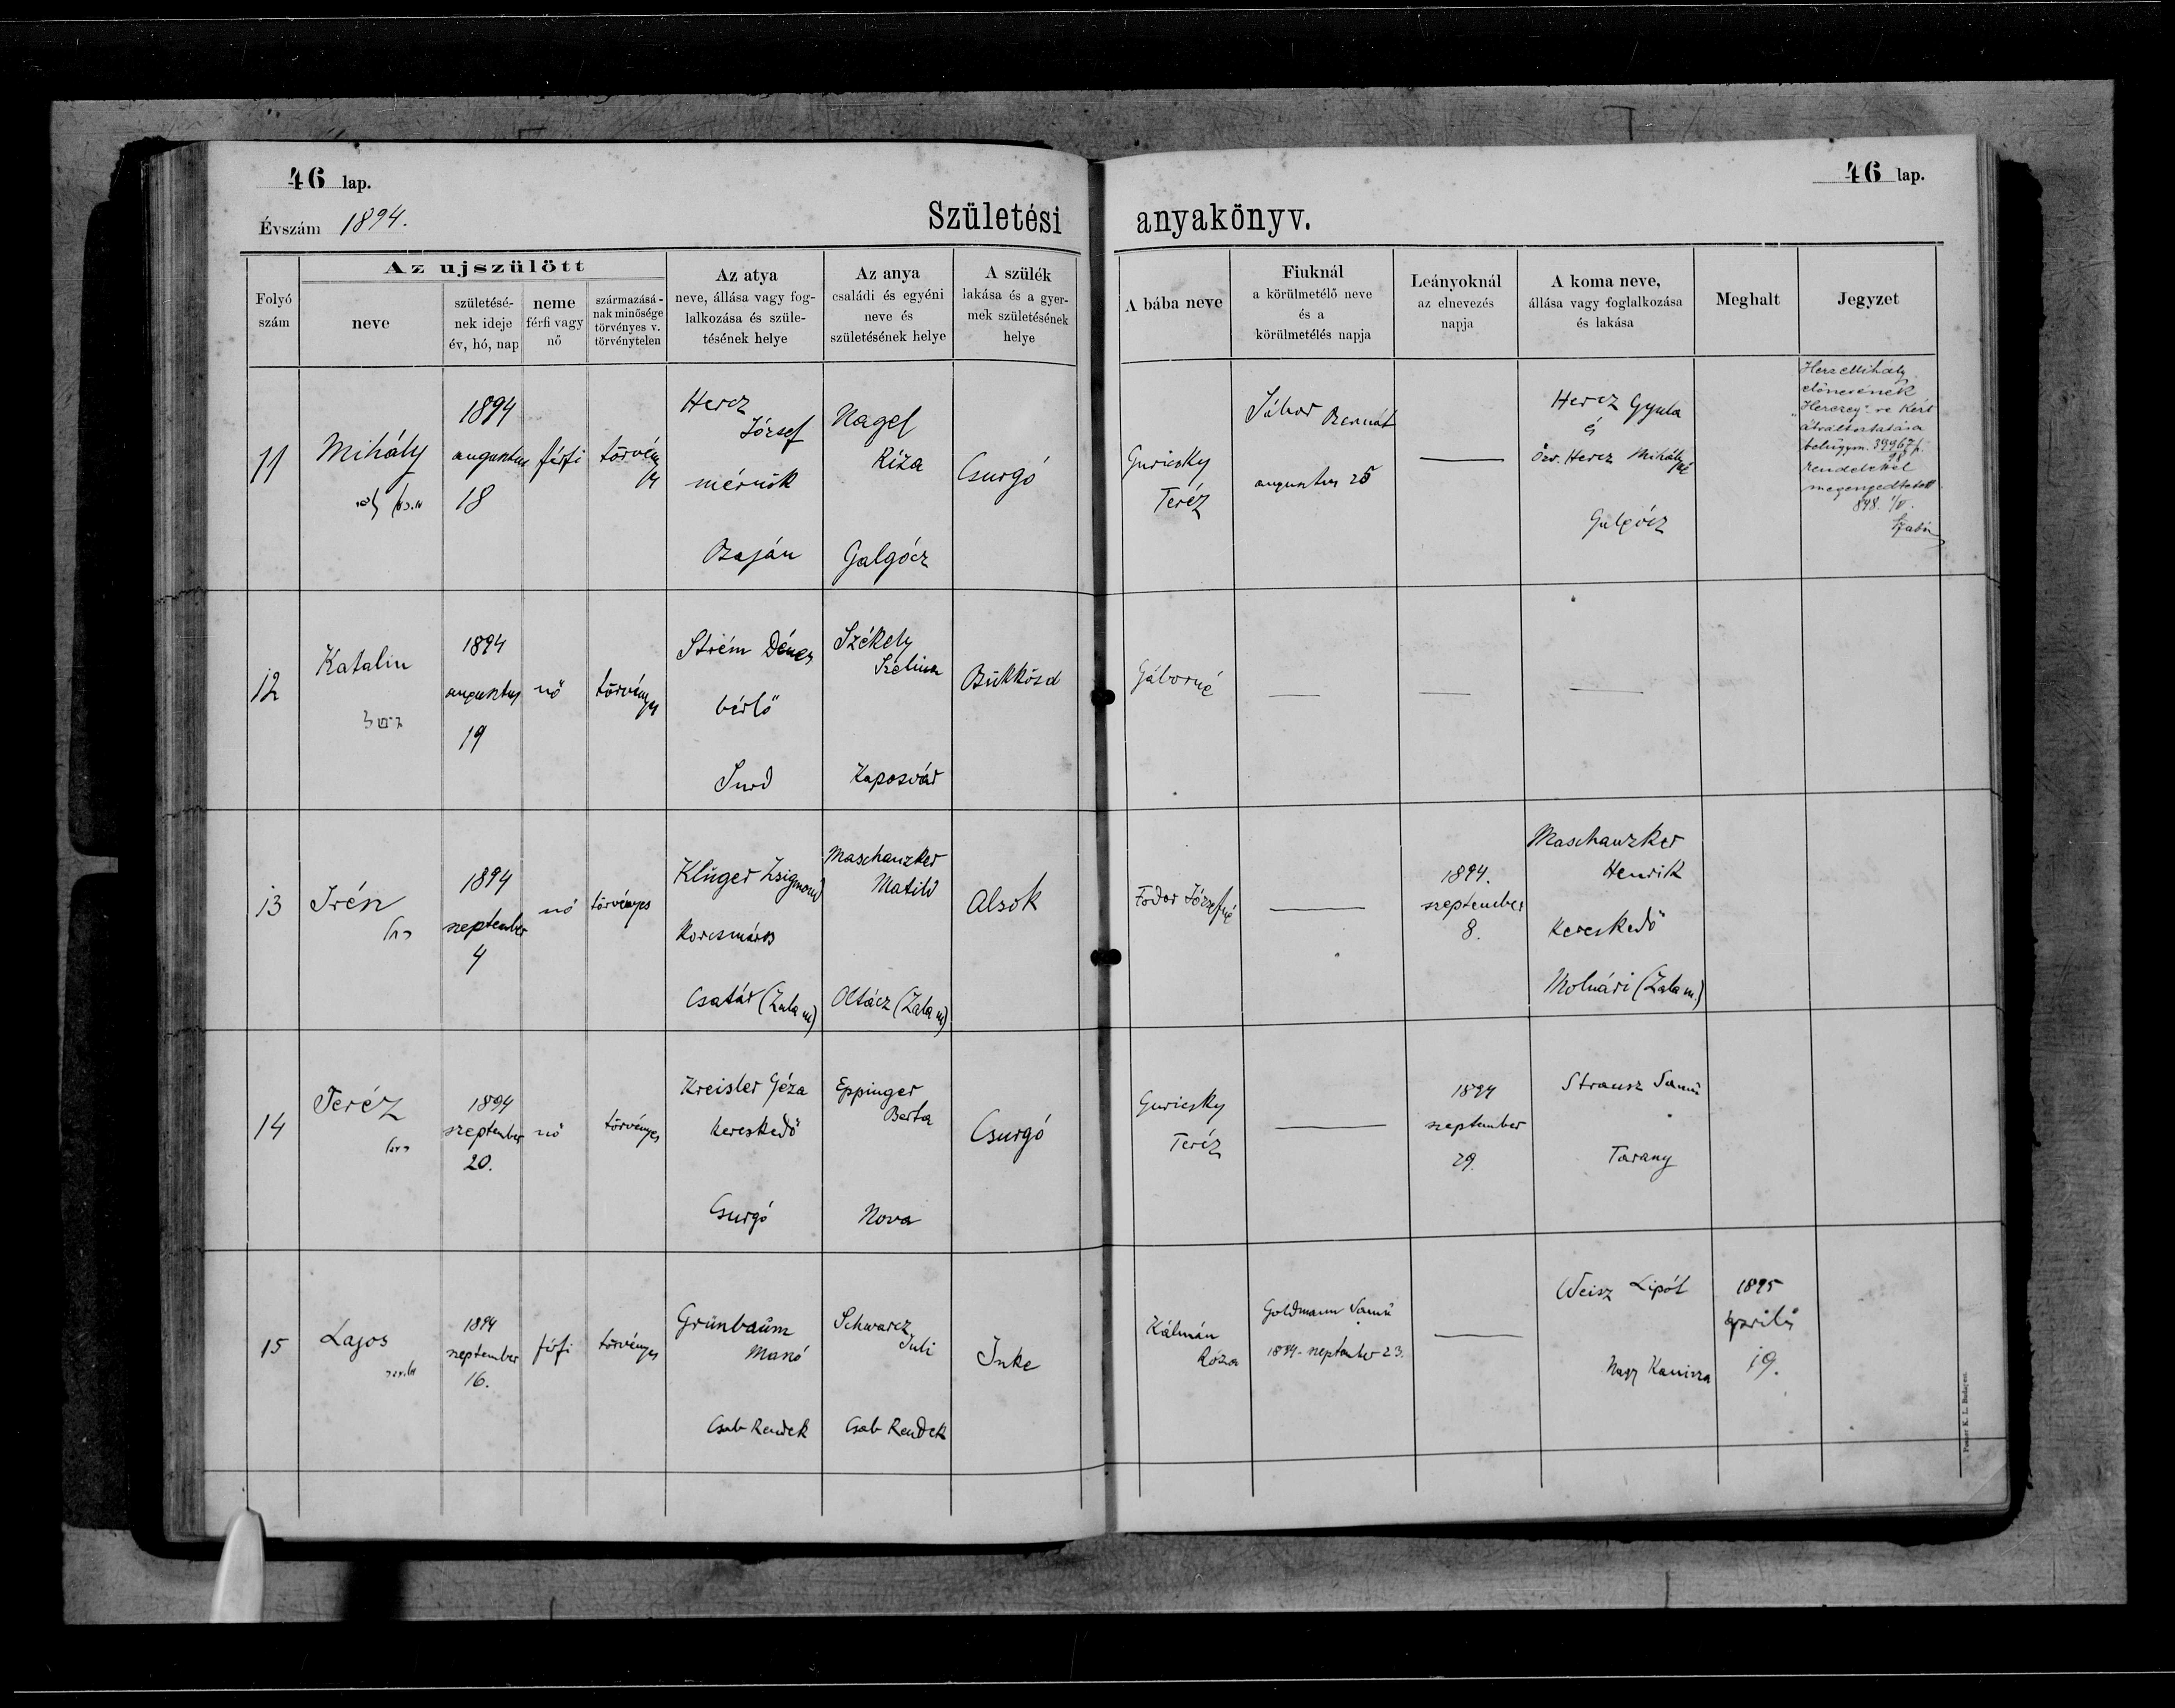 46 lap.
46 lap.
Évszám 1894.
Születési anyakönyv.
Folyó szám
Az ujszülött
neve
születésé-
nek ideje
év, hó, nap
neme
férfi vagy
nő
származásá-
nak minősége
törvényes v.
törvénytelen
Az atya
neve, állása vagy fog-
lalkozása és szüle-
tésének helye
Az anya
családi és egyéni
neve és
születésének helye
A szülék
lakása és a gyer-
mek születésének
helye
A bába neve
Fiuknál
a körülmetélő neve
és a
körülmetélés napja
Leányoknál
az elnevezés
napja
A koma neve,
állása vagy foglalkozása
és lakása
Meghalt
Jegyzet
11
Mihály
1894
augustus
18
férfi
törvény
Hercz
József
mérnök
Baján
Nagel
Riza
Galgócz
Csurgó
Guricsky
Teréz
Bernát
augustus 25
Hercz Gyula
és
özv. Hercz Mihályné
Galgócz
Herz Mihály
előnevének
"Herczeg"-re kért
átváltoztatása
belügym. 39967
98
rendelettel
megengedtetett
12
Katalin
1894
augustus
19
nő
törvényes
Strém Dénes
bérlő
Surd
Székely
Szelina
Kaposvár
Bükkösd
Gáborné
13
Irén
1894
szeptember
4
nő
törvényes
Klüger Zsigmond
Korcsmáros
Csatár (Zala m)
Maschanzker
Matild
Oltácz (Zala m)
Alsok
Fodor Józsefné
1894.
szeptember
8.
Maschanzker
Henrik
Kereskedő
Molnári (Zala m.)
14
Teréz
1894
szeptember
20.
nő
törvényes
Kreisler Géza
Kereskedő
Csurgó
Eppinger
Berta
Nova
Csurgó
Guricsky
Teréz
1894
szeptember
29.
Strausz Samú
Tarany
15
Lajos
1894
szeptember
16.
férfi
törvényes
Grünbaum
Manó
Csab Rendek
Schwarcz
Juli
Csab Rendek
Inke
Kálmán
Róza
Goldmann Samú
1894 - szeptember 23.
Weisz Lipót
Nagy Kanizsa
1895
április
19.
Posner K. L. Budapest.